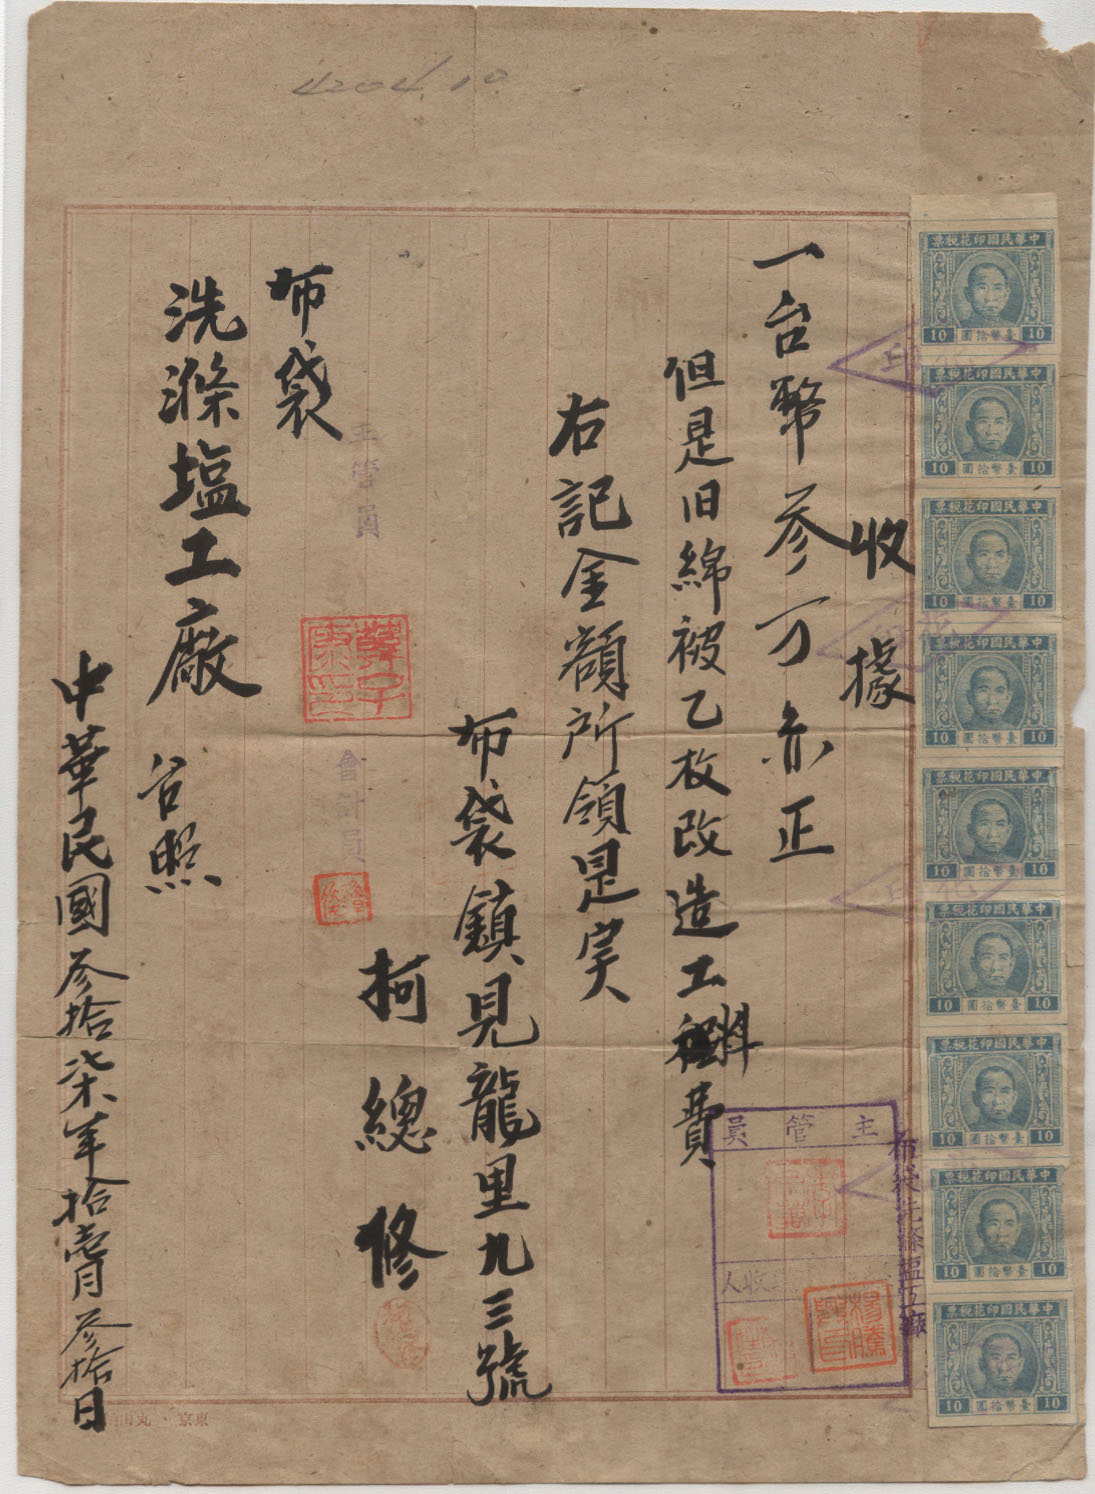 4204.10
收據
一台幣參万永正
但是旧綿被乙枚改造工料費
右記金額所領是实
布袋鎮見龍里九三號
柯總修
布袋
洗滌塩工廠
台照
中華民國參拾柒年拾壹月參拾日
主管員
會計員
主管員
收人
布袋洗滌塩工廠
中華民國印花稅票
10 臺幣拾圓 10
中華民國印花稅票
10 臺幣拾圓 10
中華民國印花稅票
10 臺幣拾圓 10
中華民國印花稅票
10 臺幣拾圓 10
中華民國印花稅票
10 臺幣拾圓 10
中華民國印花稅票
10 臺幣拾圓 10
中華民國印花稅票
10 臺幣拾圓 10
中華民國印花稅票
10 臺幣拾圓 10
中華民國印花稅票
10 臺幣拾圓 10
東京・丸山